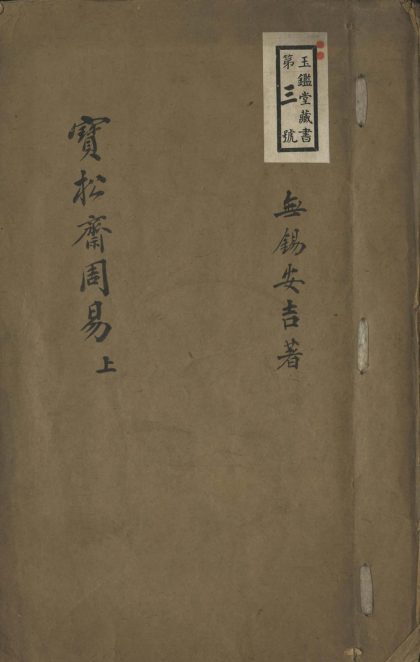 玉鑑堂藏書
第三號
無錫安吉著
寶松齋周易上